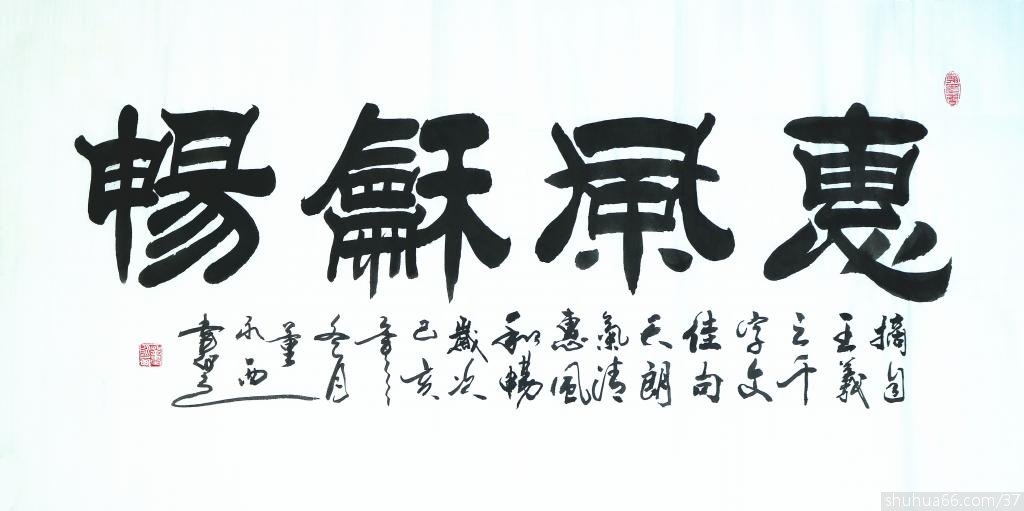 惠風龢暢
摘自
王羲
之千
字文
佳句
天朗
氣清
惠風
和暢
歲次
己亥
年之
冬月
董
永西
書
shuhua66.com/37